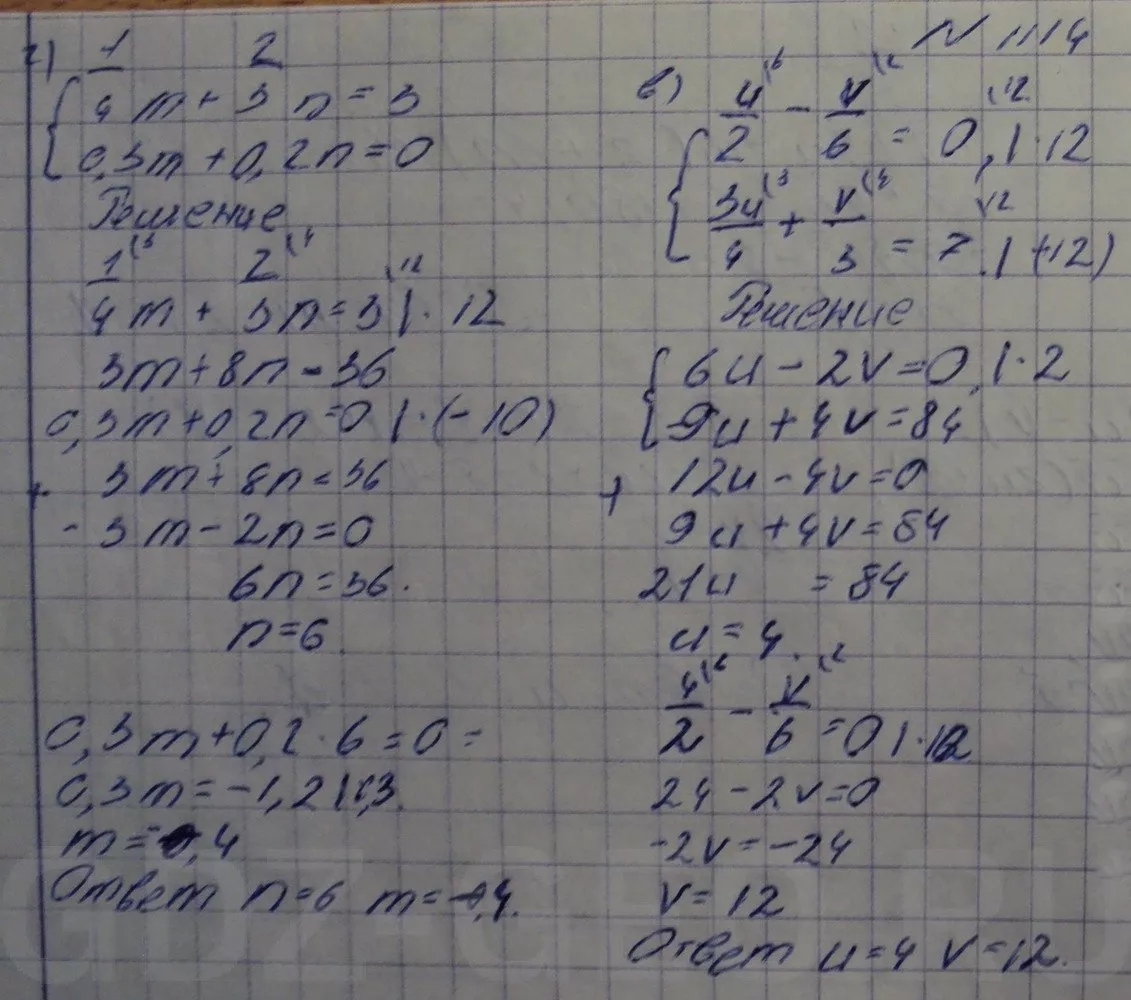 N 1114
г) 1/4 m + 2/3 n = 3
0,3m + 0,2n = 0
Решение
1/4 (3 m + 2/3 (4 n = 3 (12 | · 12
3m + 8n = 36
0,3m + 0,2n = 0 | · (-10)
+ 3m + 8n = 36
- 3m - 2n = 0
6n = 36.
n = 6
0,3m + 0,2 · 6 = 0 =
0,3m = -1,2 | : 0,3
m = -4
Ответ n = 6 m = -4.
в) u/2 (6 - v/6 (2 = 0, (12 | · 12
3u/4 (3 + v/3 (4 = 7 (12 | · 12)
Решение
6u - 2v = 0, | · 2
9u + 4v = 84
+ 12u - 4v = 0
9u + 4v = 84
21u = 84
u = 4.
4/2 (6 - v/6 (2 = 0 | · 12
24 - 2v = 0
-2v = -24
v = 12
Ответ u = 4 v = 12.